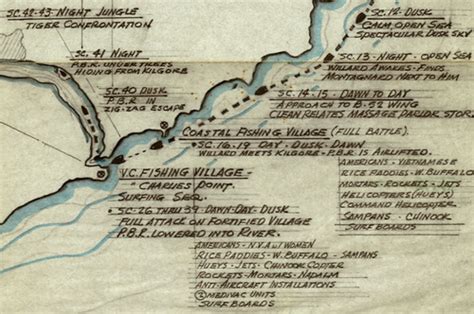 SC. 42-43 - NIGHT JUNGLE
TIGER CONFRONTATION
SC. 41 NIGHT
P.B.R. UNDER TREES
HIDING FROM KILGORE
SC. 40 DUSK
P.B.R. IN
ZIG-ZAG ESCAPE
SC. 12 - DUSK
CALM, OPEN SEA
SPECTACULAR DUSK SKY
SC. 13 - NIGHT - OPEN SEA
WILLARD AWAKES - FINDS
MONTAGNARD NEXT TO HIM
SC. 14-15 - DAWN TO DAY
APPROACH TO B-52 WING
CLEAN RELATES MASSAGE PARLOR STORY
COASTAL FISHING VILLAGE (FULL BATTLE).
SC. 16-19 DAY - DUSK - DAWN
WILLARD MEETS KILGORE - P.B.R. IS AIRLIFTED.
AMERICANS - VIETNAMESE
RICE PADDIES - W. BUFFALO
MORTARS - ROCKETS - JETS
HELICOPTERS (HUEYS)
COMMAND HELICOPTER
SAMPANS - CHINOOK
SURF BOARDS
V.C. FISHING VILLAGE -
"CHARLIES POINT.
SURFING SEQ.
SC - 26 THRU 39 - DAWN - DAY - DUSK
FULL ATTACK ON FORTIFIED VILLAGE
P.B.R. LOWERED INTO RIVER.
AMERICANS - N.V.A. W/ WOMEN
RICE PADDIES - W. BUFFALO - SAMPANS
HUEYS - JETS - CHINOOK COPTER
ROCKETS - MORTARS - NAPALM
ANTI-AIRCRAFT INSTALLATIONS
2 MEDIVAC UNITS
SURF BOARDS